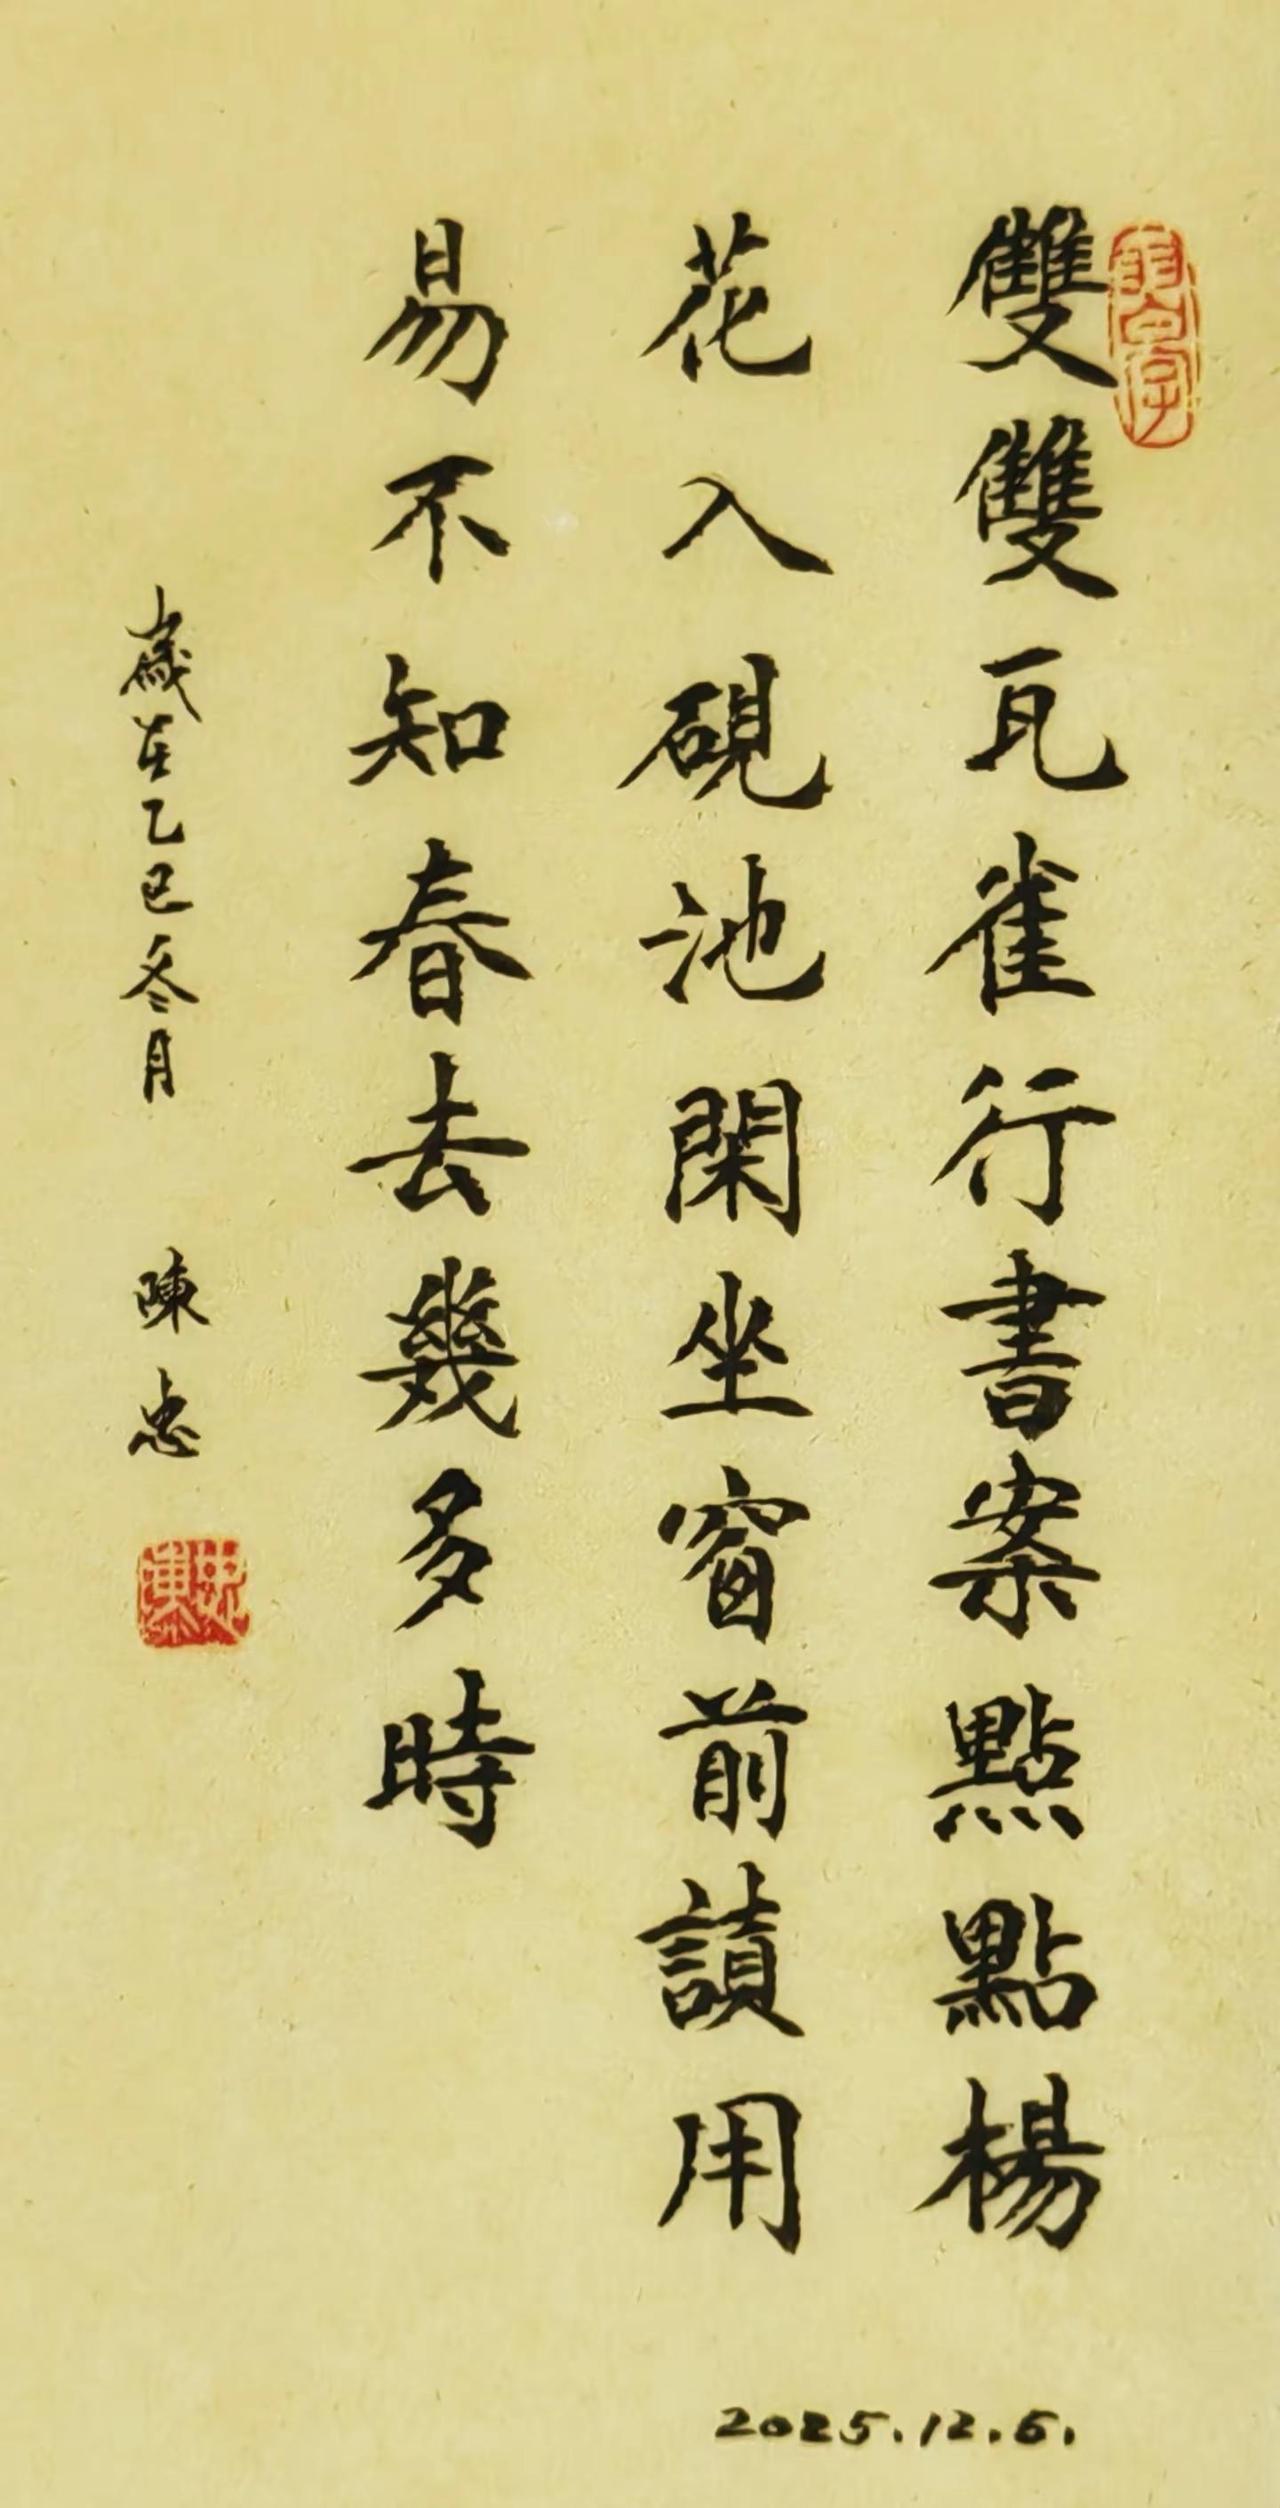 雙雙瓦雀行書案點點楊
花入硯池閑坐窗前讀用
易不知春去幾多時
歲在乙巳冬月 陳忠
2025.12.6.